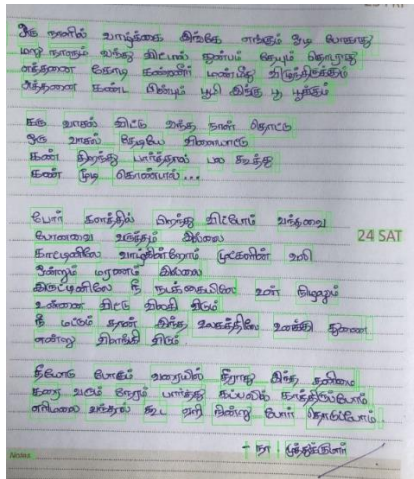 ஒரு நாளில் வாழ்க்கை இங்கே எங்கும் ஓடி போகாது
மறு நாளும் வந்து விட்டால் துன்பம் தேயும் தொடராது
எத்தனை கோடி கண்ணீர் மண்மீது விழுந்திருக்கும்
அத்தனை கண்ட பின்பும் பூமி இங்கு பூ பூக்கும்
கரு வாசல் விட்டு வந்த நாள் தொட்டு
ஒரு வாசல் தேடியே விளையாட்டு
கண் திறந்து பார்த்தால் பல கூத்து
கண் மூடி கொண்டால்...
போர் களத்தில் பிறந்து விட்டோம் வந்தவை
போனவை வருத்தம் இல்லை
காட்டினிலே வாழ்கின்றோம் முட்களின் வலி
ஒன்றும் மரணம் இல்லை
24 SAT
இருட்டினிலே நீ நடக்கையிலே உன் நிழலும்
உன்னை விட்டு விலகி விடும்
நீ மட்டும் தான் இந்த உலகத்திலே உனக்கு துணை
என்று விளங்கி விடும்
தீயோடு போகும் வரையில் தீராது இந்த தனிமை
கரை வரும் நேரம் பார்த்து கப்பலில் காத்திருப்போம்
எரிமலை வந்தால் கூட ஏறி நின்று போர் தொடுப்போம்.
- நா முத்துக்குமார்
Notes